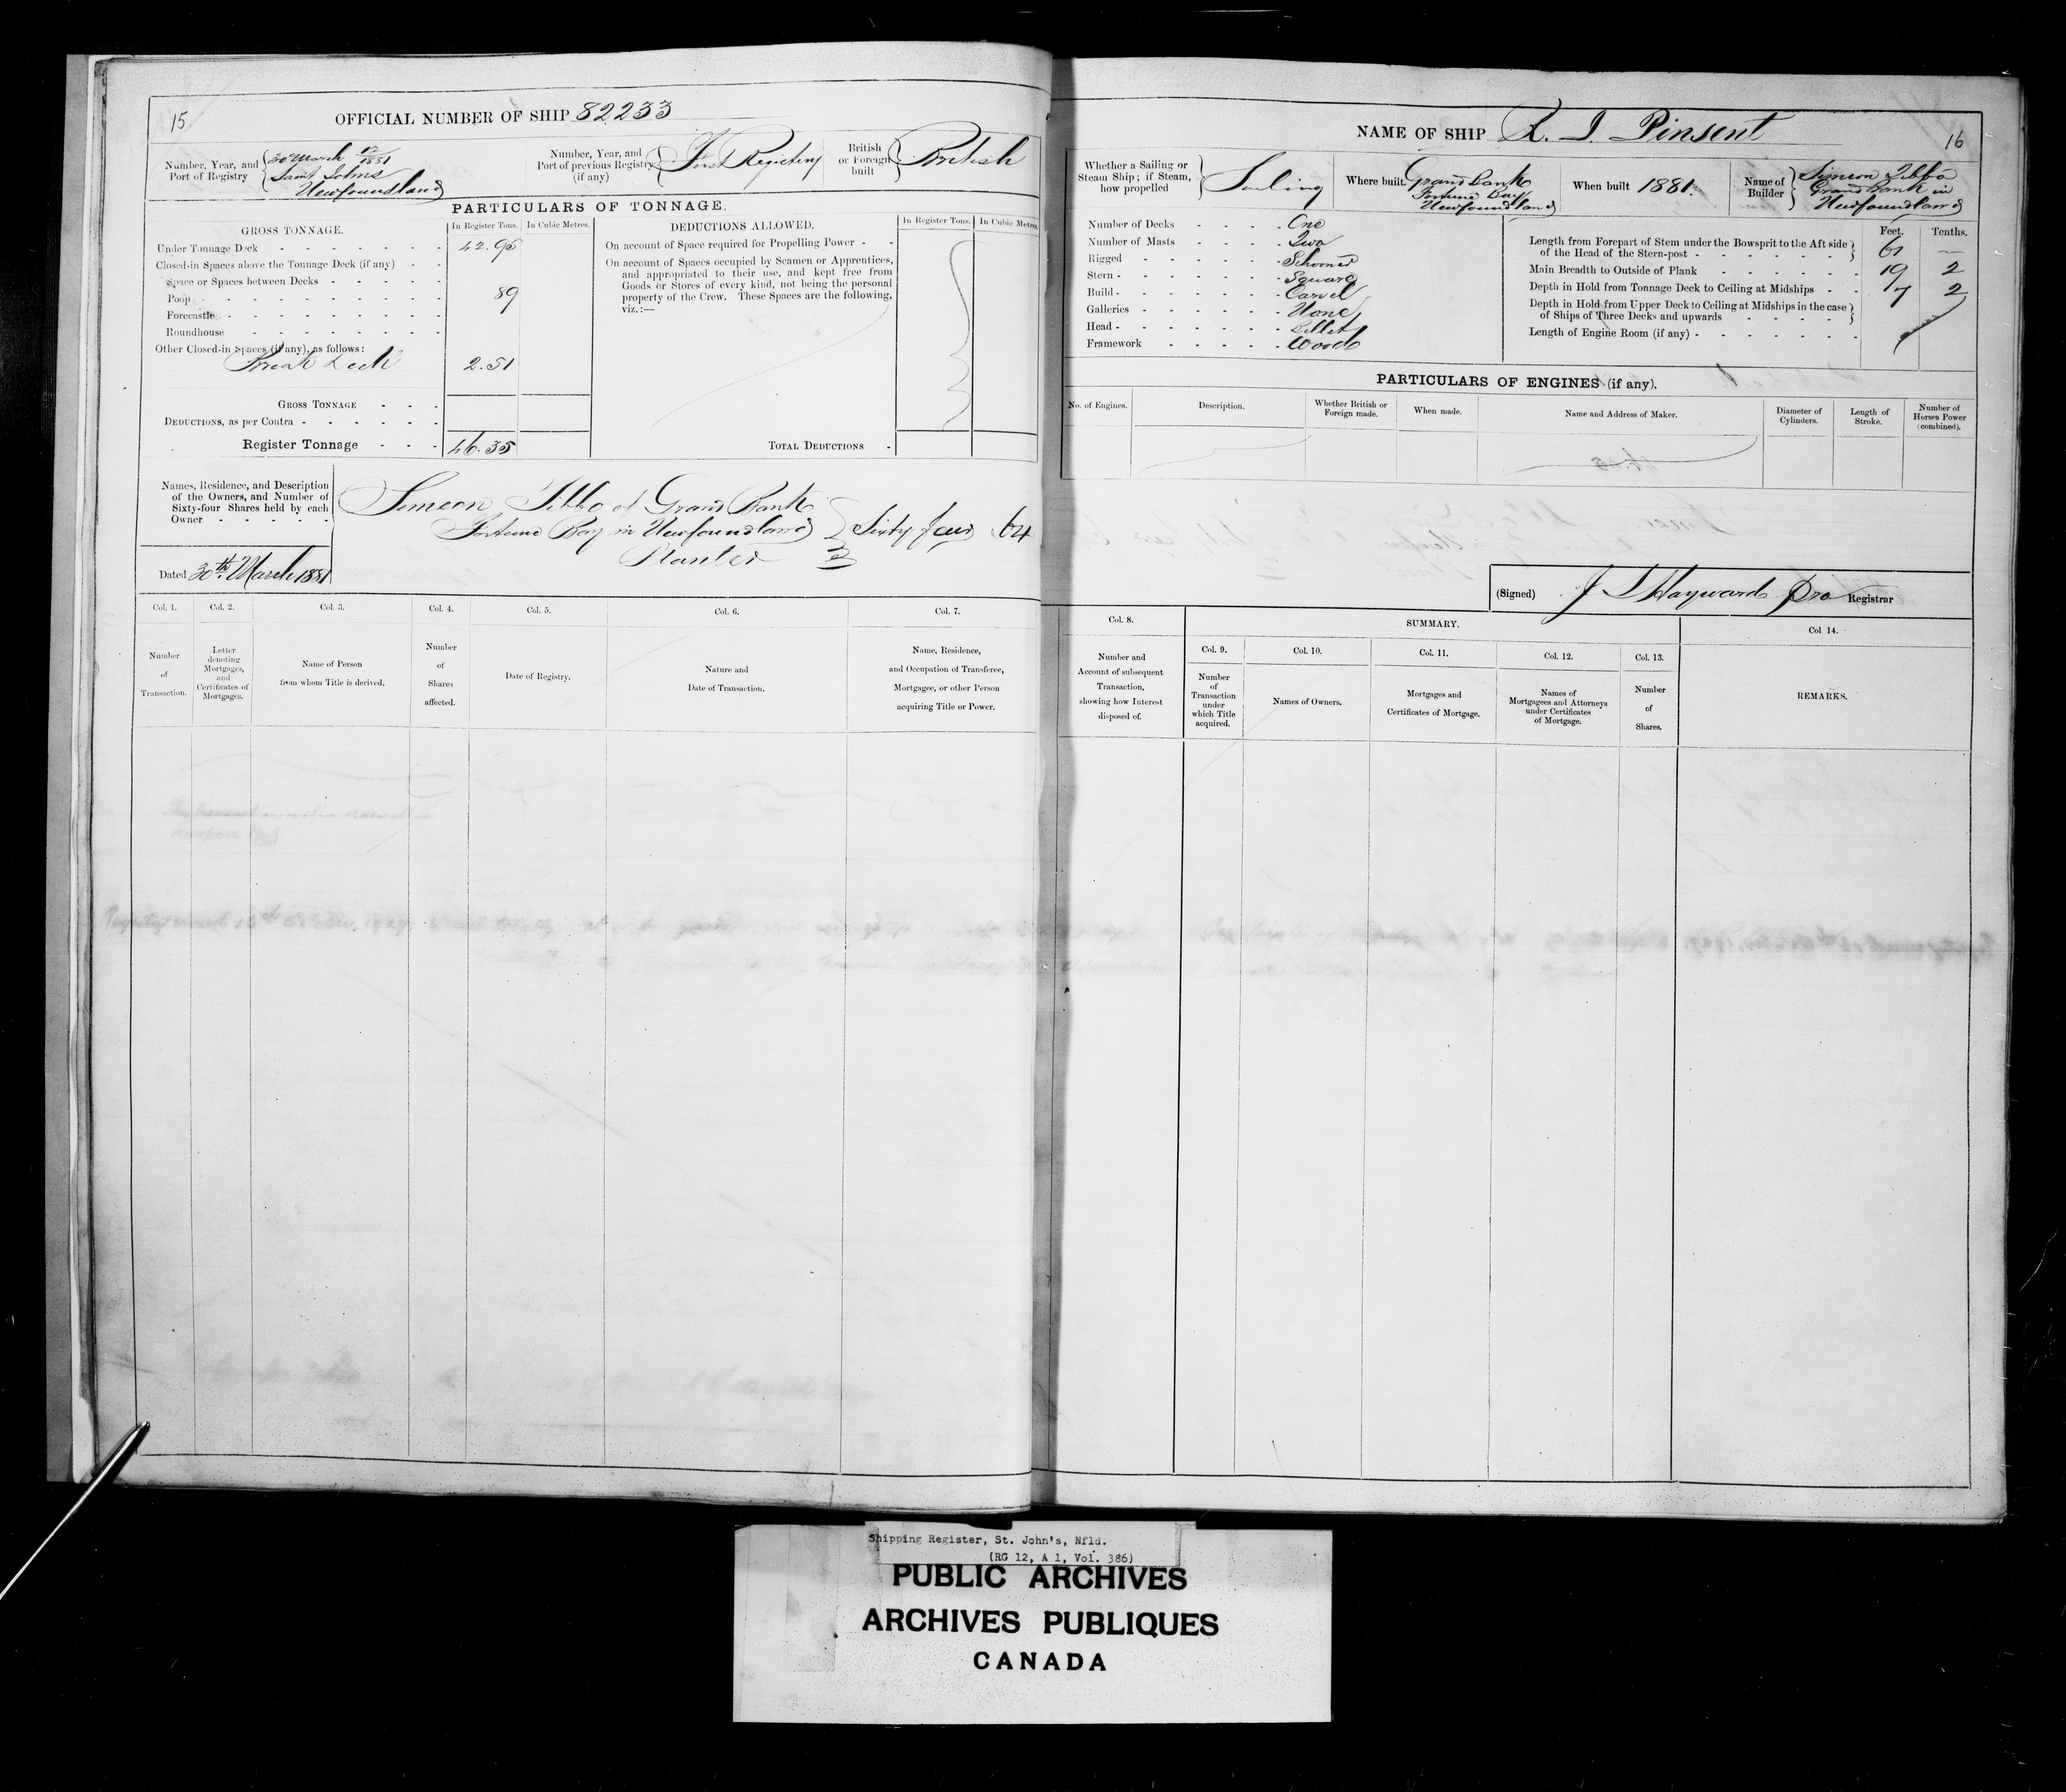 15
OFFICIAL NUMBER OF SHIP 82233
Number, Year, and Port of Registry
30 March 12/1881
Saint Johns
Newfoundland
Number, Year, and Port of previous Registry (if any)
First Registry
British or Foreign built
British
PARTICULARS OF TONNAGE.
GROSS TONNAGE.
In Register Tons.
In Cubic Metres.
Under Tonnage Deck 42.95
Closed-in Spaces above the Tonnage Deck (if any)
Space or Spaces between Decks
Poop 89
Forecastle
Roundhouse
Other Closed-in Spaces (if any), as follows:
Break Deck 2.51
GROSS TONNAGE
DEDUCTIONS, as per Contra
Register Tonnage 46.35
DEDUCTIONS ALLOWED.
In Register Tons.
In Cubic Metres.
On account of Space required for Propelling Power
On account of Spaces occupied by Seamen or Apprentices,
and appropriated to their use, and kept free from
Goods or Stores of every kind, not being the personal
property of the Crew. These Spaces are the following,
viz.:—
TOTAL DEDUCTIONS
Names, Residence, and Description
of the Owners, and Number of
Sixty-four Shares held by each
Owner
Simeon Tibbo of Grand Bank
Fortune Bay in Newfoundland Sixty four 64
Planter
Dated 30th March 1881
Col. 1.
Number of Transaction.
Col. 2.
Letter denoting Mortgages, and Certificates of Mortgages.
Col. 3.
Name of Person from whom Title is derived.
Col. 4.
Number of Shares affected.
Col. 5.
Date of Registry.
Col. 6.
Nature and Date of Transaction.
Col. 7.
Name, Residence, and Occupation of Transferee, Mortgagee, or other Person acquiring Title or Power.
NAME OF SHIP R. J. Pinsent
16
Whether a Sailing or Steam Ship; if Steam, how propelled
Sailing
Where built.
Grand Bank
Fortune Bay
Newfoundland
When built 1881.
Name of Builder
Simeon Tibbo
Grand Bank in
Newfoundland
Number of Decks One
Number of Masts Two
Rigged Schooner
Stern Square
Build Carvel
Galleries None
Head Billet
Framework Wood
Feet.
Tenths.
Length from Forepart of Stem under the Bowsprit to the Aft side
of the Head of the Stern-post 61 —
Main Breadth to Outside of Plank 19 2
Depth in Hold from Tonnage Deck to Ceiling at Midships 7 2
Depth in Hold from Upper Deck to Ceiling at Midships in the case
of Ships of Three Decks and upwards
Length of Engine Room (if any)
PARTICULARS OF ENGINES (if any).
No. of Engines.
Description.
Whether British or Foreign made.
When made.
Name and Address of Maker.
Diameter of Cylinders.
Length of Stroke.
Number of Horses Power (combined).
(Signed) J Hayward Pro Registrar
Col. 8.
Number and Account of subsequent Transaction, showing how Interest disposed of.
SUMMARY.
Col. 9.
Number of Transaction under which Title acquired.
Col. 10.
Names of Owners.
Col. 11.
Mortgages and Certificates of Mortgage.
Col. 12.
Names of Mortgagees and Attorneys under Certificates of Mortgage.
Col. 13.
Number of Shares.
Col 14.
REMARKS.
Shipping Register, St. John's, Nfld.
(RG 12, A 1, Vol. 386)
PUBLIC ARCHIVES
ARCHIVES PUBLIQUES
CANADA